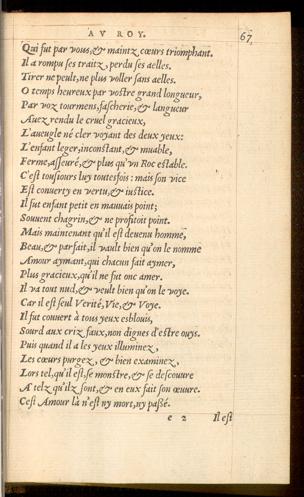 AV ROY.
67
Qui fut par vous, & maintz cœurs triomphant.
Il a rompu ses traitz, perdu ses aelles.
Tirer ne peult, ne plus voller sans aelles.
O temps heureux par vostre grand longueur,
Par voz tourmens, fascherie, & langueur
Auez rendu le cruel gracieux,
L'aueugle né cler voyant des deux yeux:
L'enfant leger, inconstant, & muable,
Ferme, asseuré, & plus qu'vn Roc estable.
C'est tousiours luy toutesfois: mais son vice
Est conuerty en vertu, & iustice.
Il fut enfant petit en mauuais point;
Souuent chagrin, & ne profitoit point.
Mais maintenant qu'il est deuenu homme,
Beau, & parfait, il vault bien qu'on le nomme
Amour aymant, qui chacun fait aymer,
Plus gracieux, qu'il ne fut onc amer.
Il va tout nud, & veult bien qu'on le voye.
Car il est seul Verité, Vie, & Voye.
Il fut couuert à tous yeux esblouis,
Sourd aux criz faux, non dignes d'estre ouys.
Puis quand il a les yeux illuminez,
Les cœurs purgez, & bien examinez,
Lors tel, qu'il est, se monstre, & se descouure
A telz qu'ilz sont, & en eux fait son œuure.
Cest Amour là n'est ny mort, ny passé.
e 2 Il est